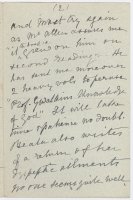 (2)
and must try again
as Mr Allen assures me
it "grew on him on
second reading". He
has sent me moreover
2 heavy vols to peruse
"Prof. Gwatkins Knowledge
of God". It will take
time & patience no doubt.
Beatie also writes
of a return of her
dyspeptic ailments
no one seems quite well